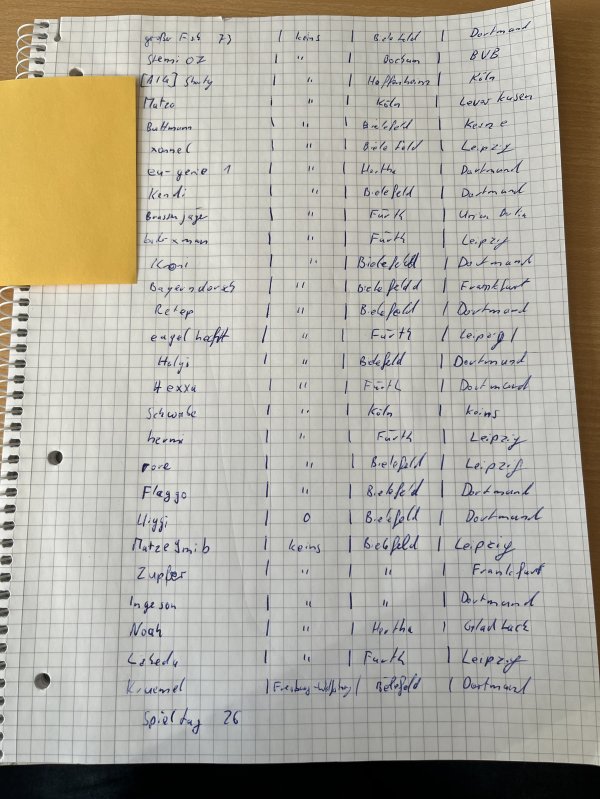 großer Fisch 73 | keins | Bielefeld | Dortmund
Stemi 07 | " | Bochum | BVB
[A16] Shorty | " | Hoffenheim | Köln
Matzo | " | Köln | Leverkusen
Buttmann | " | Bielefeld | Keine
xonnel | " | Bielefeld | Leipzig
eu-genie 1 | " | Hertha | Dortmund
Kendi | " | Bielefeld | Dortmund
Brassenjäger | " | Fürth | Union Berlin
| " | Fürth | Leipzig
Kroni | " | Bielefeld | Dortmund
Bayerndorsch | " | Bielefeld | Frankfurt
Retep | " | Bielefeld | Dortmund
engelhaft | " | Fürth | Leipzig |
Holgi | " | Bielefeld | Dortmund
Hexxa | " | Fürth | Dortmund
Schwabe | " | Köln | keins
hermx | " | Fürth | Leipzig
rore | " | Bielefeld | Leipzig
Flaggo | " | Bielefeld | Dortmund
Higgi | 0 | Bielefeld | Dortmund
Matzegmib | keins | Bielefeld | Leipzig
Zupfer | " | " | Frankfurt
Ingeson | " | " | Dortmund
Noah | " | Hertha | Gladbach
| " | Fürth | Leipzig
Kruemel | Freiburg-Wolfsburg | Bielefeld | Dortmund
Spieltag 26